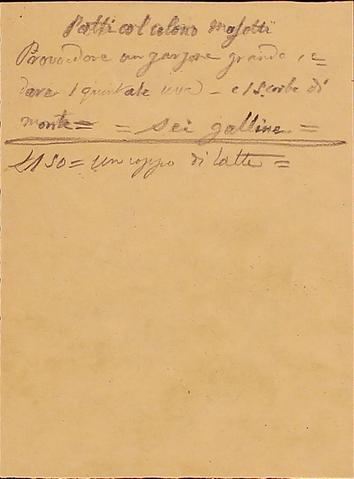 Patti col colono Masetti
Provvedere un garzone grande, e =
dare 1 quintale uva - e 1 Scorbe di
monte = = sei galline =
£150 = un coppo di latte =